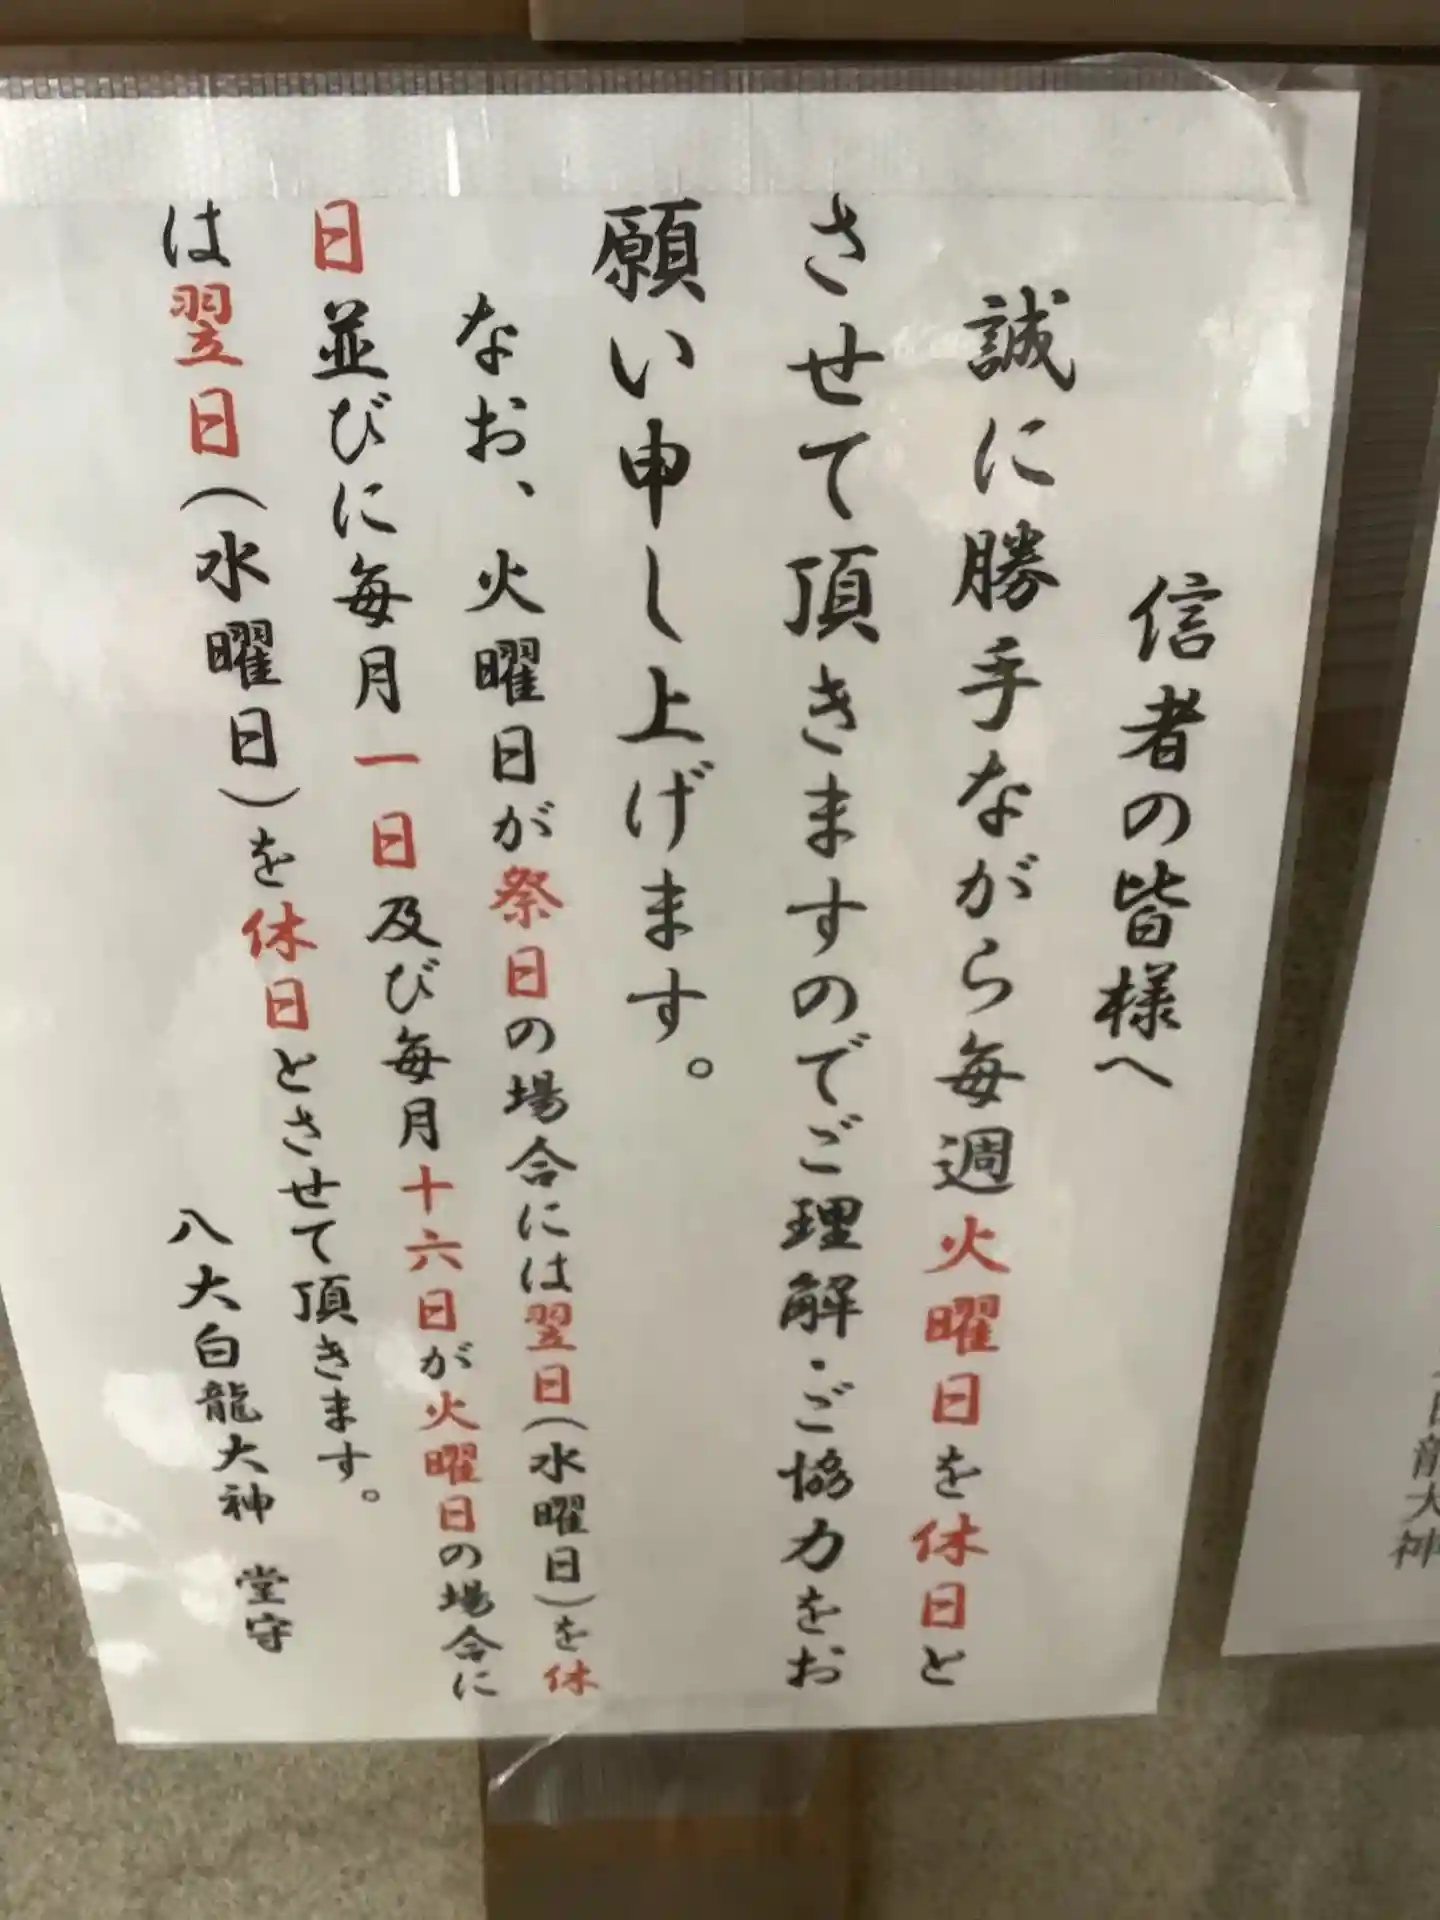 信者の皆様へ
誠に勝手ながら毎週火曜日を休日と
させて頂きますのでご理解・ご協力をお
願い申し上げます。
なお、火曜日が祭日の場合には翌日(水曜日)を休
日並びに毎月一日及び毎月十六日が火曜日の場合に
は翌日(水曜日)を休日とさせて頂きます。
八大白龍大神 堂守
白龍大神